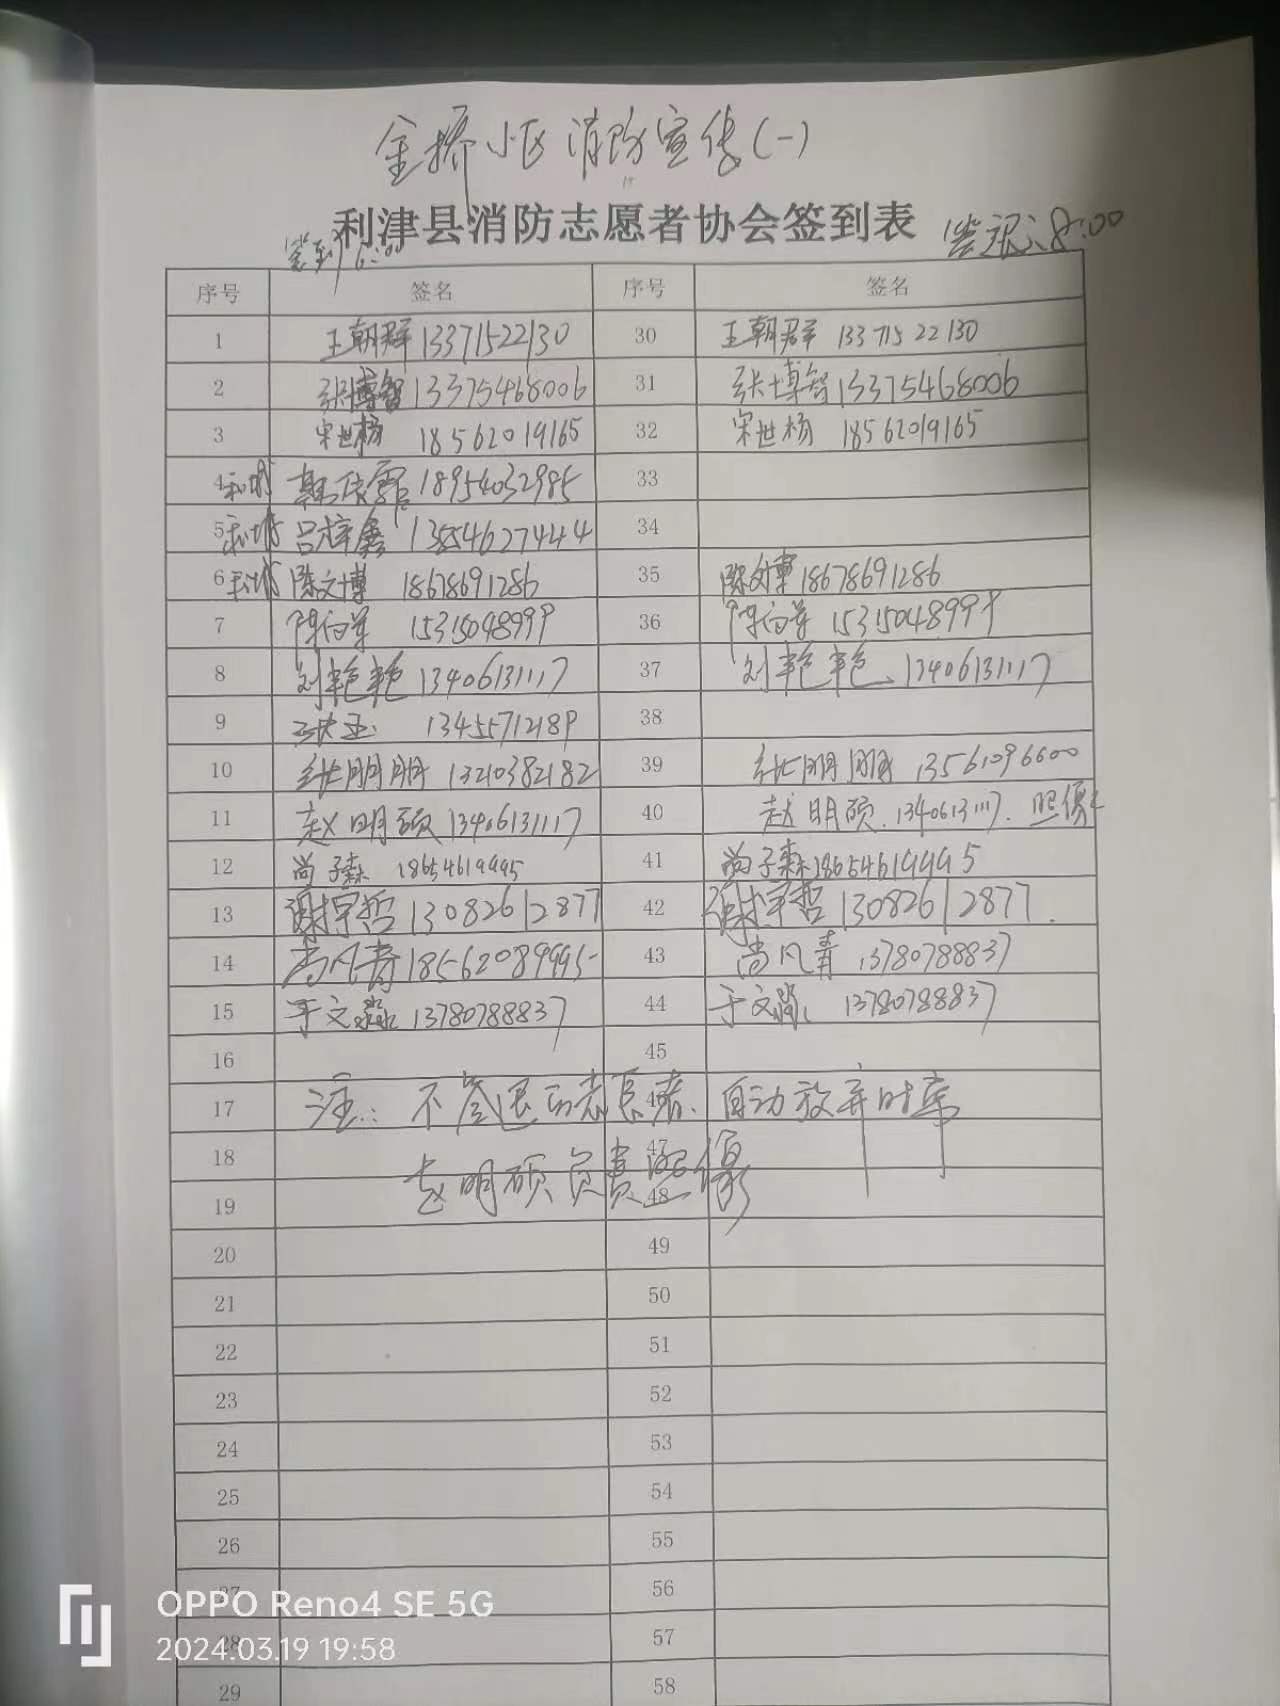 金桥小区消防宣传(一)
利津县消防志愿者协会签到表
签到 6:00 签退:8:00
序号 签名 序号 签名
1 王朝群 13371522130 30 王朝群 13371522130
2 张博智 13375468006 31 张博智 13375468006
3 宋世杨 18562019165 32 宋世杨 18562019165
4 18954032985 33
5 吕梓鑫 13854627444 34
6 陈文博 18678691286 35 陈文博 18678691286
7 陈向军 15315048999 36 陈向军 15315048999
8 刘艳艳 13406131117 37 刘艳艳 13406131117
9 13455712189 38
10 张朋朋 13210382182 39 张朋朋 13561096600
11 赵明硕 13406131117 40 赵明硕 13406131117 照像
12 尚子森 18654619995 41 尚子森 18654619995
13 谢宇哲 13082612877 42 谢宇哲 13082612877
14 尚凡青 18562089995 43 尚凡青 13780788837
15 于文淼 13780788837 44 于文淼 13780788837
16 45
17 注:不签退 者 自动放弃时常
18 47 赵明硕负责照像
19 48
20 49
21 50
22 51
23 52
24 53
25 54
26 55
27 56
28 57
29 58
OPPO Reno4 SE 5G
2024.03.19 19:58